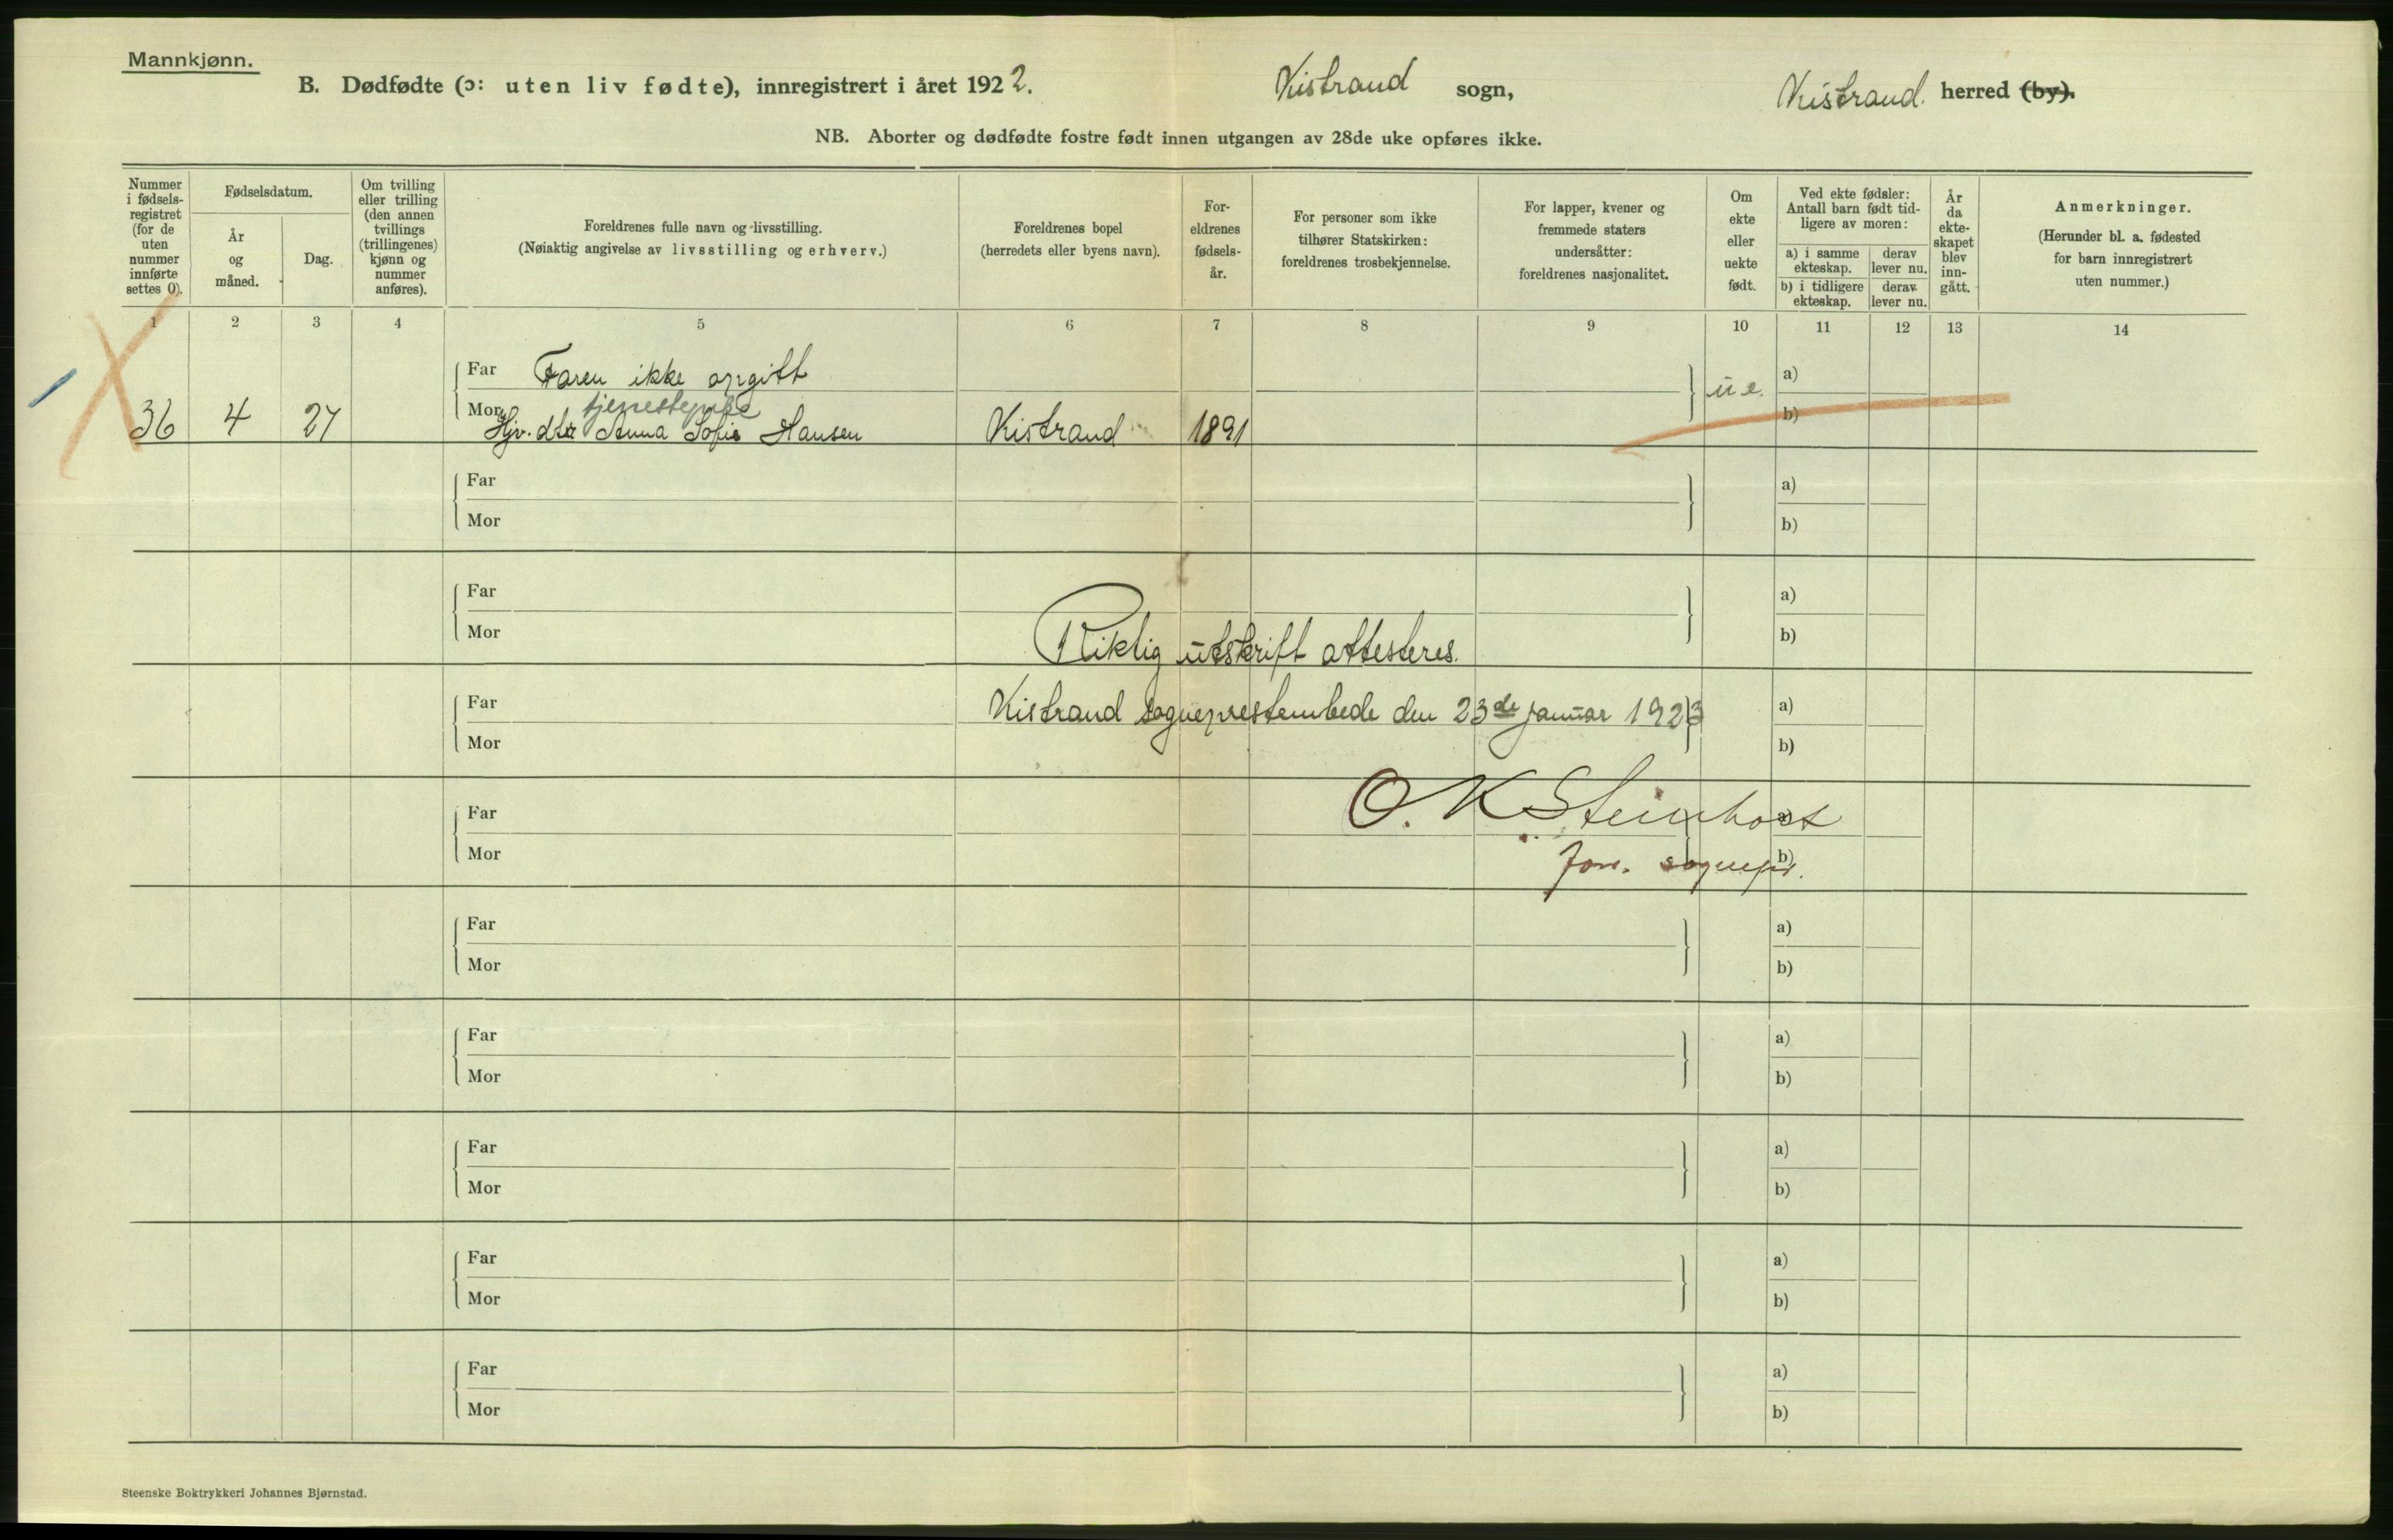 Mannkjønn.
B. Dødfødte (ɔ: uten liv fødte), innregistrert i året 1922. Kistrand sogn, Kistrand herred (by).
NB. Aborter og dødfødte fostre født innen utgangen av 28de uke opføres ikke.
Nummer
i fødsels-
registret
(for de
uten
nummer
innførte
settes 0).
Fødselsdatum.
År
og
måned.
Dag.
Om tvilling
eller trilling
(den annen
tvillings
(trillingenes)
kjønn og
nummer
anføres).
Foreldrenes fulle navn og livsstilling.
(Nøiaktig angivelse av livsstilling og erhverv.)
Foreldrenes bopel
(herredets eller byens navn).
For-
eldrenes
fødsels-
år.
For personer som ikke
tilhører Statskirken:
foreldrenes trosbekjennelse.
For lapper, kvener og
fremmede staters
undersåtter:
foreldrenes nasjonalitet.
Om
ekte
eller
uekte
født.
Ved ekte fødsler:
Antall barn født tid-
ligere av moren:
a) i samme
ekteskap.
derav
lever nu.
b) i tidligere
ekteskap.
derav
lever nu.
År
da
ekte-
skapet
blev
inn-
gått.
Anmerkninger.
(Herunder bl. a. fødested
for barn innregistrert
uten nummer.)
1 2 3 4 5 6 7 8 9 10 11 12 13 14
Far Faren ikke opgitt u.e. a)
tjenestepike
36 4 27 Mor Hjv. dtr Anna Sofie Hansen Kistrand 1891 b)
Far a)
Mor b)
Far a)
Mor b)
Riktig utskrift attesteres.
Far a)
Kistrand sogneprestembede den 23de januar 1923
Mor b)
Far a)
O. K Steinholt
Mor b)
fow. sognepr.
Far a)
Mor b)
Far a)
Mor b)
Far a)
Mor b)
Far a)
Mor b)
Far a)
Mor b)
Steenske Boktrykkeri Johannes Bjørnstad.